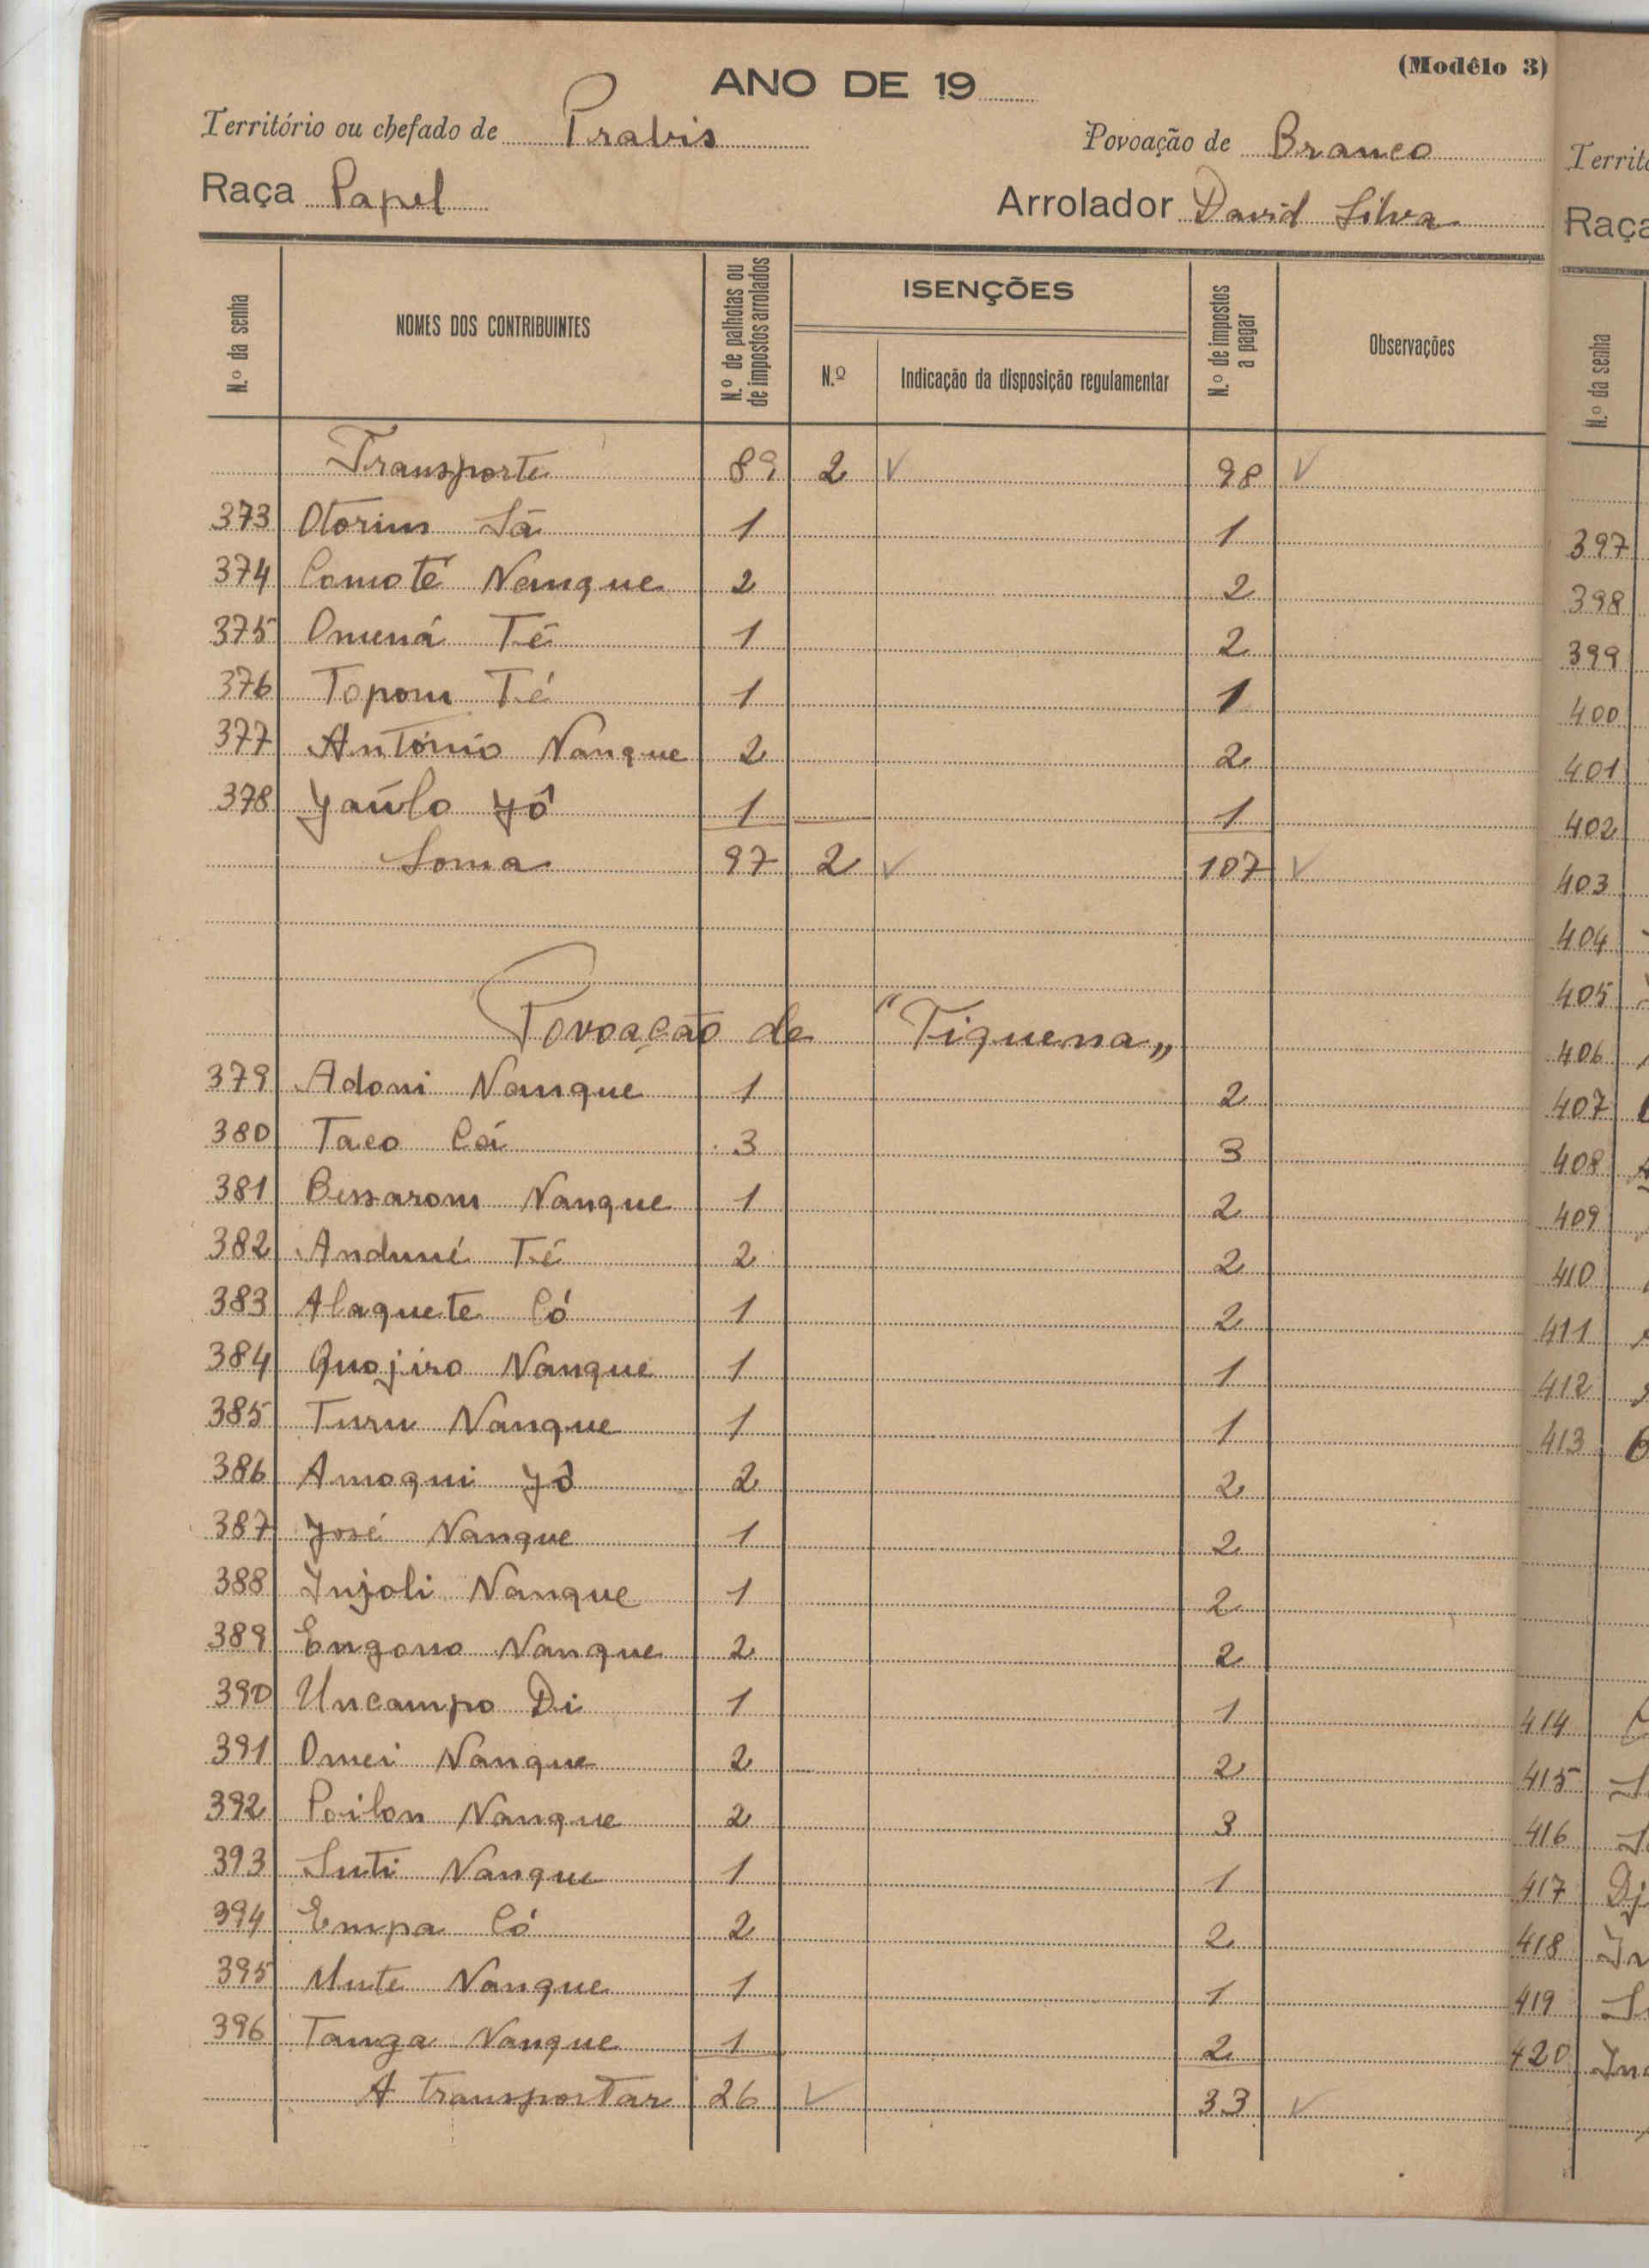 (Modêlo 3)
ANO DE 19
Território ou chefado de Prabis Povoação de Branco
Raça Papel Arrolador David Silva
N.º da senha NOMES DOS CONTRIBUINTES N.º de palhotas ou de impostos arrolados ISENÇÕES N.º Indicação da disposição regulamentar N.º de impostos a pagar Observações
Transporte 89 2 98
373 Otorim Sá 1 1
374 Comoté Nanque 2 2
375 Omená Té 1 2
376 Topom Té 1 1
377 António Nanque 2 2
378 Yaúlo Yó 1 1
Soma 97 2 107
Povoação de "Tiquena"
379 Adoni Nanque 1 2
380 Taco Cá 3 3
381 Bessarom Nanque 1 2
382 Anduné Té 2 2
383 Alaquete Có 1 2
384 Quojiro Nanque 1 1
385 Turu Nanque 1 1
386 Amoqui Yó 2 2
387 José Nanque 1 2
388 Injoli Nanque 1 2
389 Engono Nanque 2 2
390 Uncampo Di 1 1
391 Omei Nanque 2 2
392 Poilon Nanque 2 3
393 Suti Nanque 1 1
394 Empa Có 2 2
395 Mute Nanque 1 1
396 Tanga Nanque 1 2
A transportar 26 33
Territ
Raça
N.º da senha
397
398
399
400
401
402
403
404
405
406
407
408
409
410
411
412
413
414
415
416
417 Dj
418
419
420